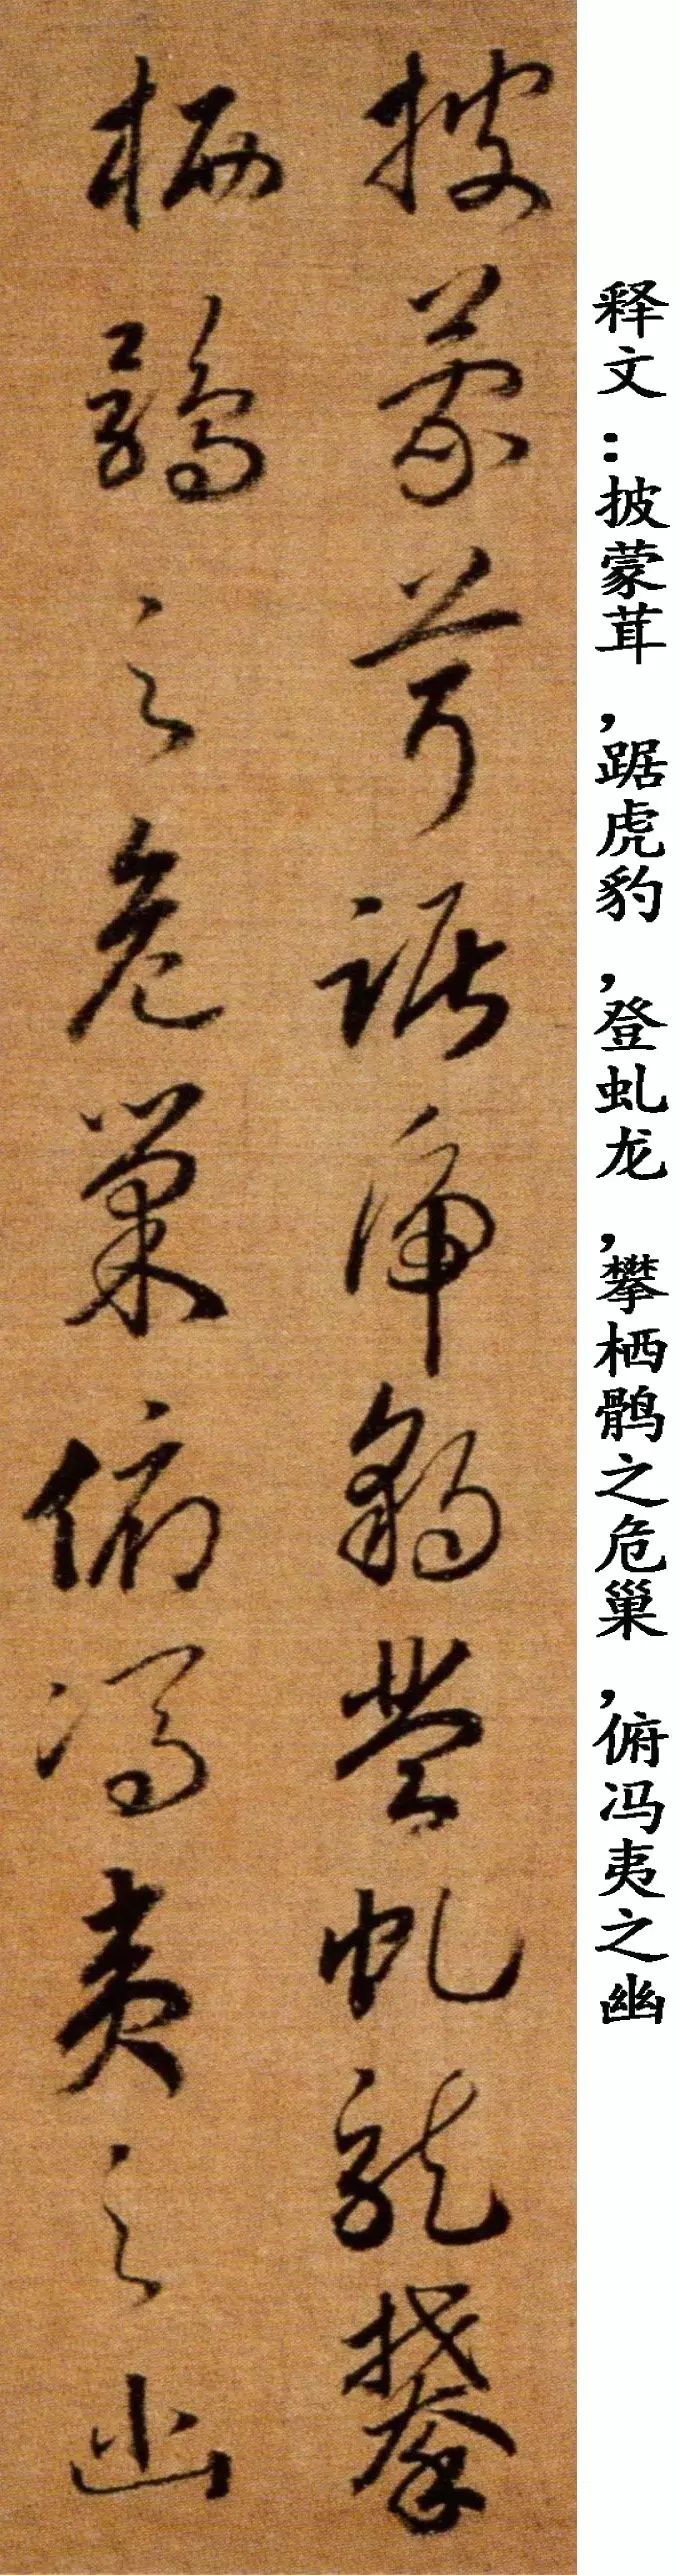 披蒙茸踞虎豹登虬龍攀
栖鶻之危巢俯馮夷之幽
释文：披蒙茸，踞虎豹，登虬龙，攀栖鹘之危巢，俯冯夷之幽